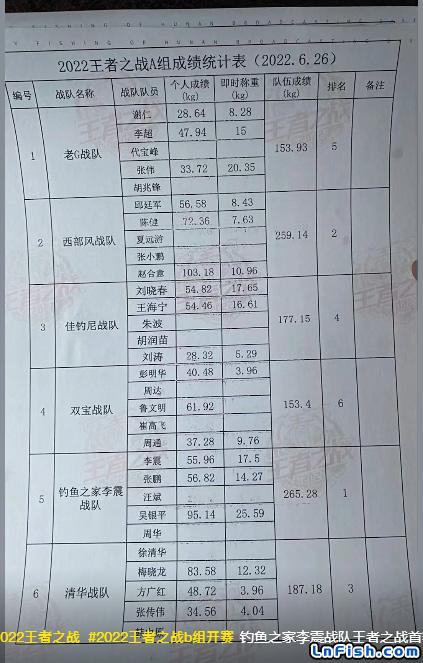 FISHING OF HUMAN BROADCAST
2022王者之战A组成绩统计表（2022.6.26）
编号 战队名称 战队队员 个人成绩(kg) 即时称重(kg) 队伍成绩(kg) 排名 备注
1 老G战队 153.93 5
谢仁 28.64 8.28
李超 47.94 15
代宝峰
张伟 33.72 20.35
胡兆锋
2 西部风战队 259.14 2
邱廷军 56.58 8.43
陈健 72.36 7.63
夏远游
张小鹏
赵合意 103.18 10.96
3 佳钓尼战队 177.15 4
刘晓春 54.82 17.65
王海宁 54.46 16.61
朱波
胡润苗
刘涛 28.32 5.29
4 双宝战队 153.4 6
彭明华 40.48 3.96
周达
鲁文明 61.92
崔高飞
周通 37.28 9.76
5 钓鱼之家李震战队 265.28 1
李震 55.96 17.5
张鹏 56.82 14.27
汪斌
吴银平 95.14 25.59
周华
6 清华战队 187.18 3
徐清华
梅晓龙 83.58 12.32
方广红 48.72 3.96
张传伟 34.56 4.04
2022王者之战 #2022王者之战b组开赛 钓鱼之家李震战队王者之战首
LnFish.com